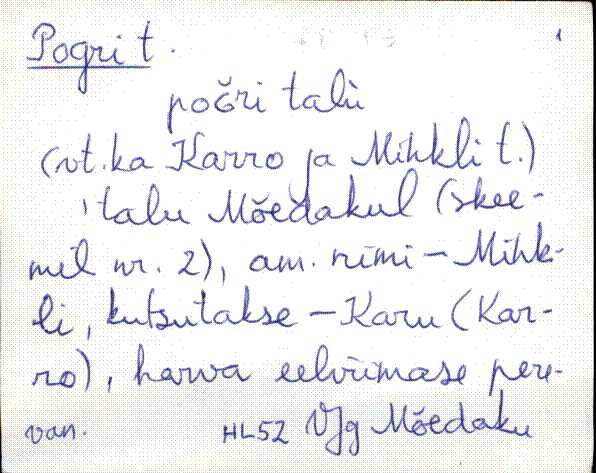 Pogri t.
poG̀ri talù
(vt. ka Karro ja Mihkli t.)
'talu Mõedakul (skee-
mil nr. 2), am. nimi – Mihk-
li, kutsutakse – Karu (Kar-
ro), harva eelviimase pere-
van. HL52 VJg Mõedaku